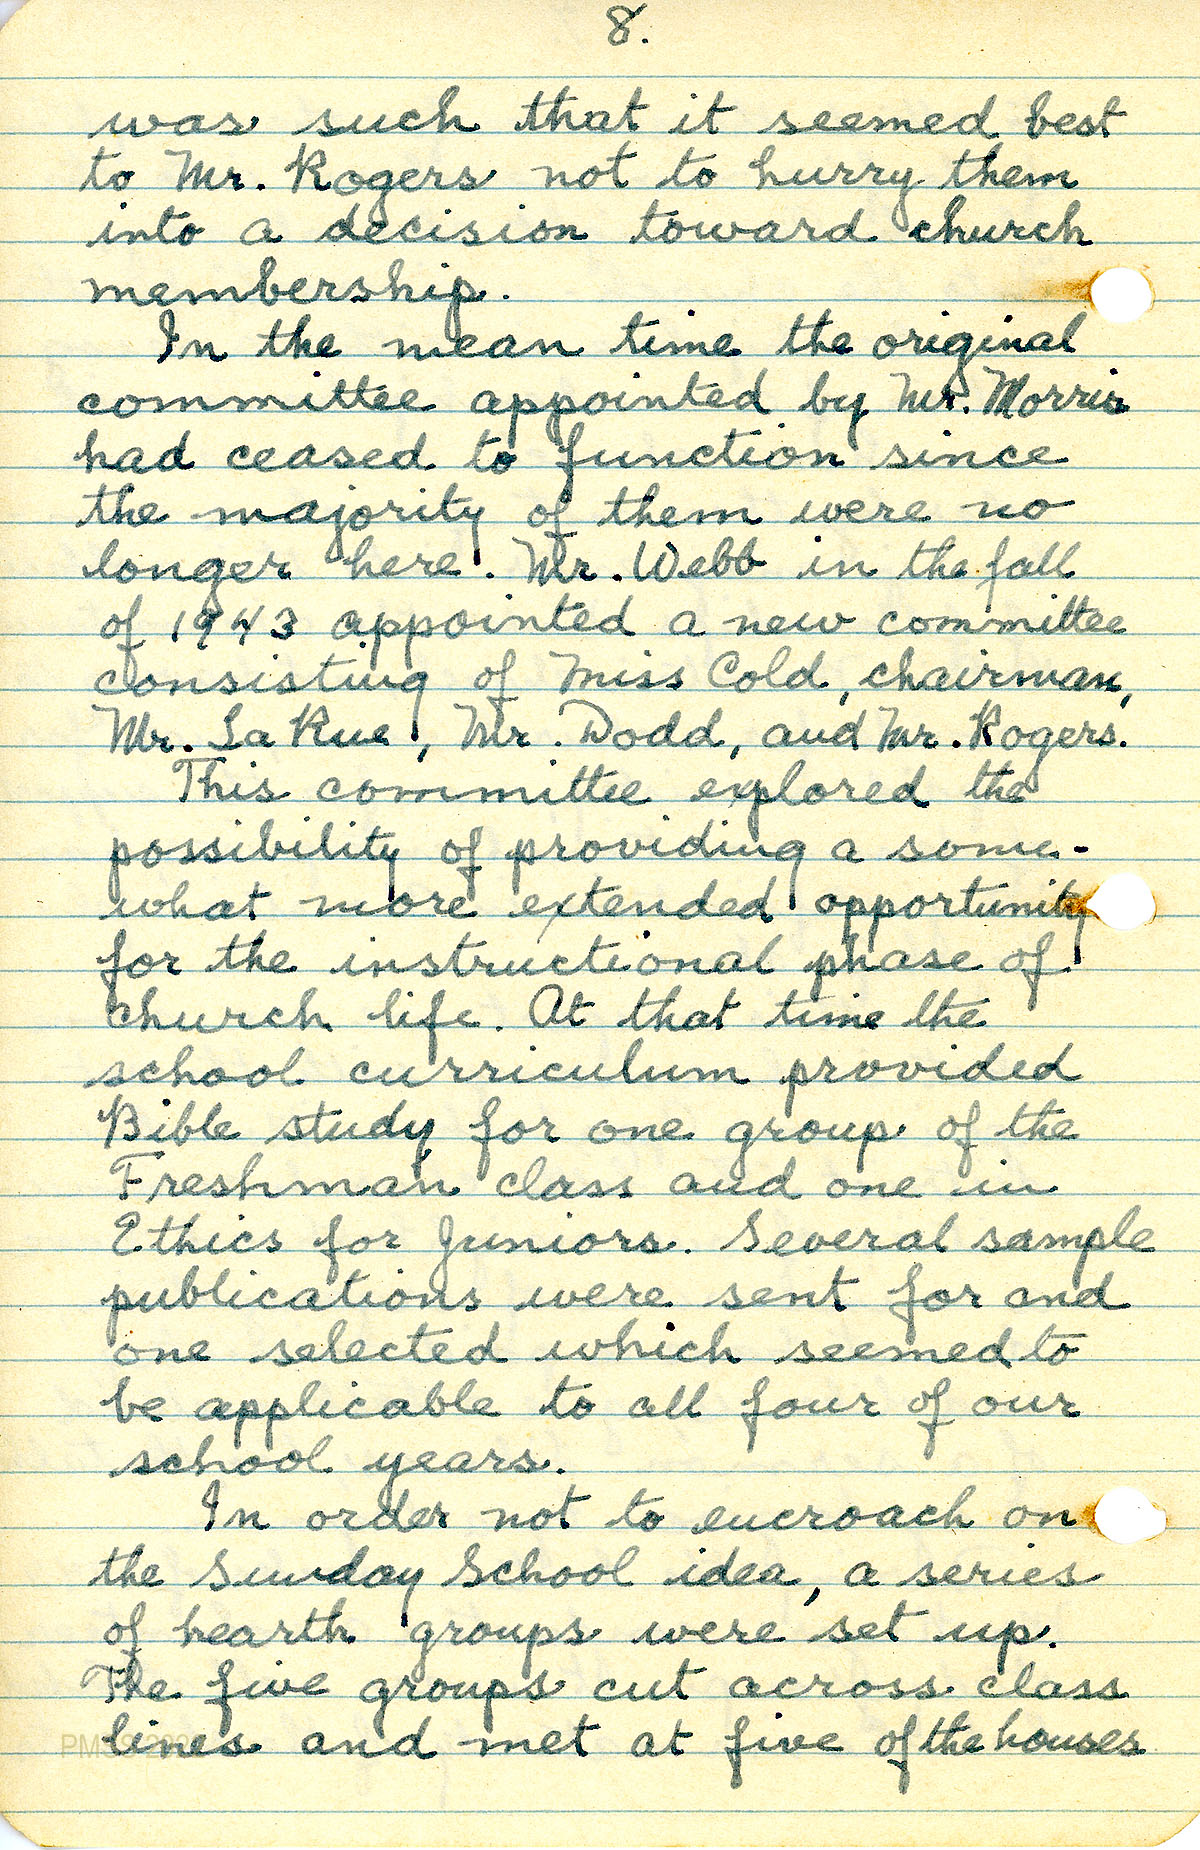 8.
was such that it seemed best
to Mr. Rogers not to hurry them
into a decision toward church
membership.
In the mean time the original
committee appointed by Mr. Morris
had ceased to function since
the majority of them were no
longer here. Mr. Webb in the fall
of 1943 appointed a new committee
consisting of Miss Cold, chairman,
Mr. La Rue, Mr. Dodd, and Mr. Rogers.
This committee explored the
possibility of providing a some-
what more extended opportunity
for the instructional phase of
church life. At that time the
school curriculum provided
Bible study for one group of the
Freshman class and one in
Ethics for Juniors. Several sample
publications were sent for and
one selected which seemed to
be applicable to all four of our
school years.
In order not to encroach on
the Sunday School idea, a series
of hearth groups were set up.
The five groups cut across class
lines and met at five of the houses